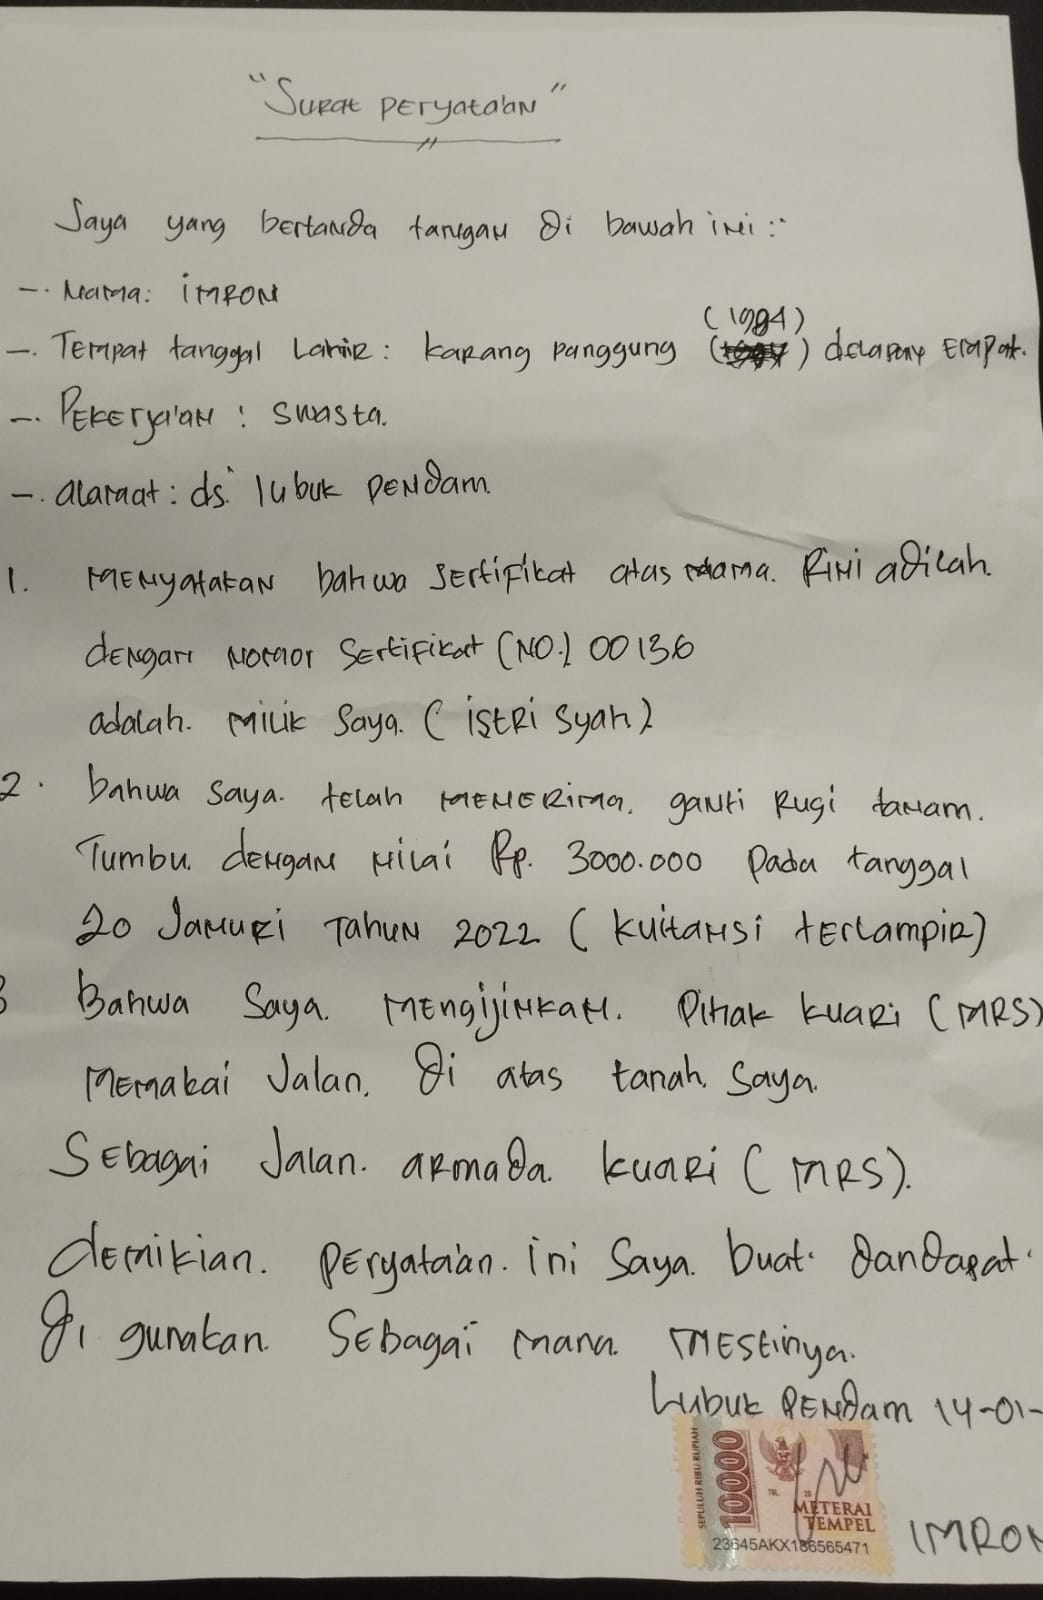 "Surat peryata'an"
Saya yang bertanda tangan di bawah ini :
-. Nama: IMRON
(1984)
-. Tempat tanggal Lahir: karang panggung ( ) delapan Empat.
-. Pekerja'an : Swasta.
-. alamat : ds. lubuk PENdam.
1. MENyatakan bahwa Sertifikat atas nama. Rini adilah.
dengan Nomor Sertifikat (NO.) 00136
adalah. milik Saya. (istri syah)
2. bahwa saya. telah menerima. ganti Rugi tanam.
Tumbu. dengan Nilai Rp. 3000.000 Pada tanggal
20 Januri Tahun 2022 (kuitansi terlampir)
3 Bahwa Saya. mengijinkan. Pihak kuari (MRS)
Memakai Jalan. di atas tanah. Saya.
Sebagai Jalan. armada. kuari (MRS).
demikian. peryata'an. ini Saya. buat. dandapat.
di gunakan. Sebagai mana. mestinya.
Lubuk PENdam 14-01-
SEPULUH RIBU RUPIAH
10000
TGL. 20
METERAI
TEMPEL
23645AKX186565471
IMRON